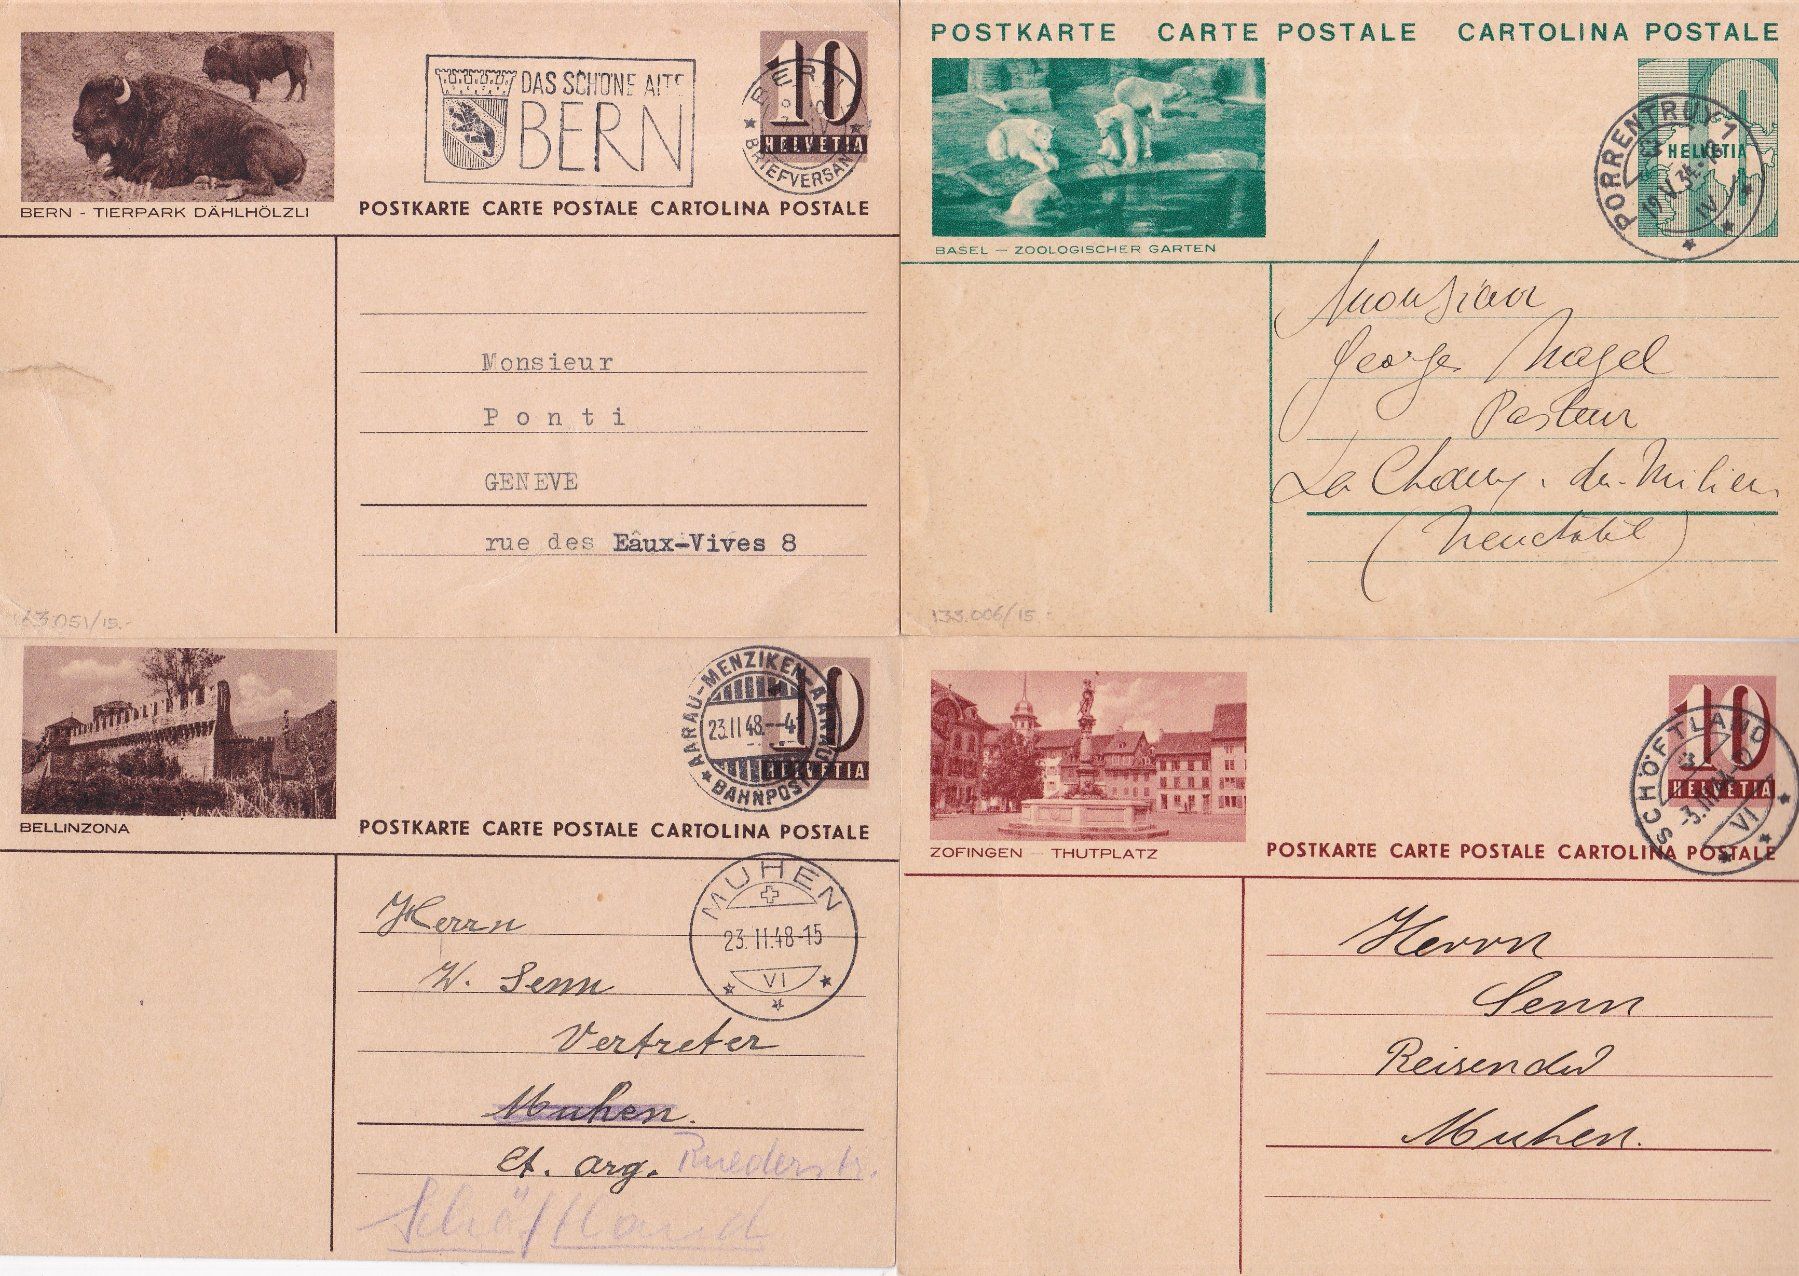 BERN - TIERPARK DÄHLHÖLZLI
DAS SCHÖNE ALTE
BERN
10
HELVETIA
BERN
BRIEFVERSAND
POSTKARTE CARTE POSTALE CARTOLINA POSTALE
Monsieur
Ponti
GENEVE
rue des Eâux-Vives 8
63.051/15.-
POSTKARTE CARTE POSTALE CARTOLINA POSTALE
BASEL — ZOOLOGISCHER GARTEN
HELVETIA
PORRENTRUY 1
19.V.34
IV
Monsieur
Georges Nagel
Pasteur
La Chaux-du-Milieu
(Neuchâtel)
133.006/15.-
BELLINZONA
10
HELVETIA
AARAU-MENZIKEN-AARAU
23.II.48.--4
BAHNPOST
POSTKARTE CARTE POSTALE CARTOLINA POSTALE
MUHEN
23.II.48-15
VI
Herrn
W. Senn
Vertreter
Muhen.
Ct. Arg. Ruederstr.
Schöftland
ZOFINGEN - THUTPLATZ
10
HELVETIA
SCHÖFTLAND
VI
POSTKARTE CARTE POSTALE CARTOLINA POSTALE
Herrn
Senn
Reisender
Muhen.